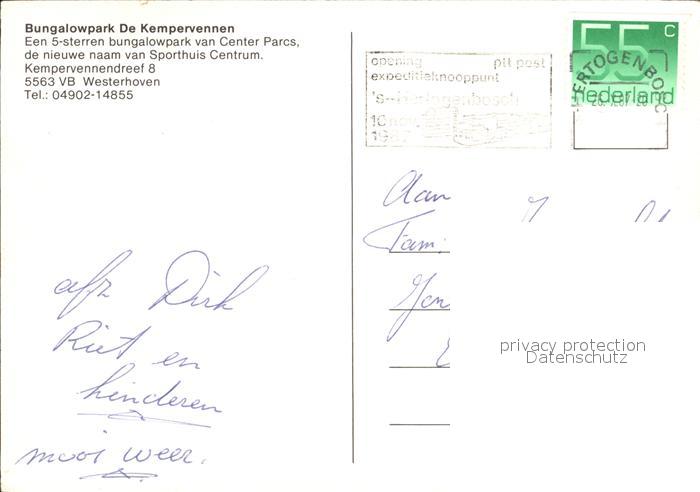 Bungalowpark De Kempervennen
Een 5-sterren bungalowpark van Center Parcs,
de nieuwe naam van Sporthuis Centrum.
Kempervennendreef 8
5563 VB Westerhoven
Tel.: 04902-14855
opening ptt post
expeditieknooppunt
's-Hertogenbosch
10 nov
1987
55 c
nederland
HERTOGENBOSC
Aan
Fam.
afz Dirk
Riet en
kinderen
mooi weer.
privacy protection
Datenschutz